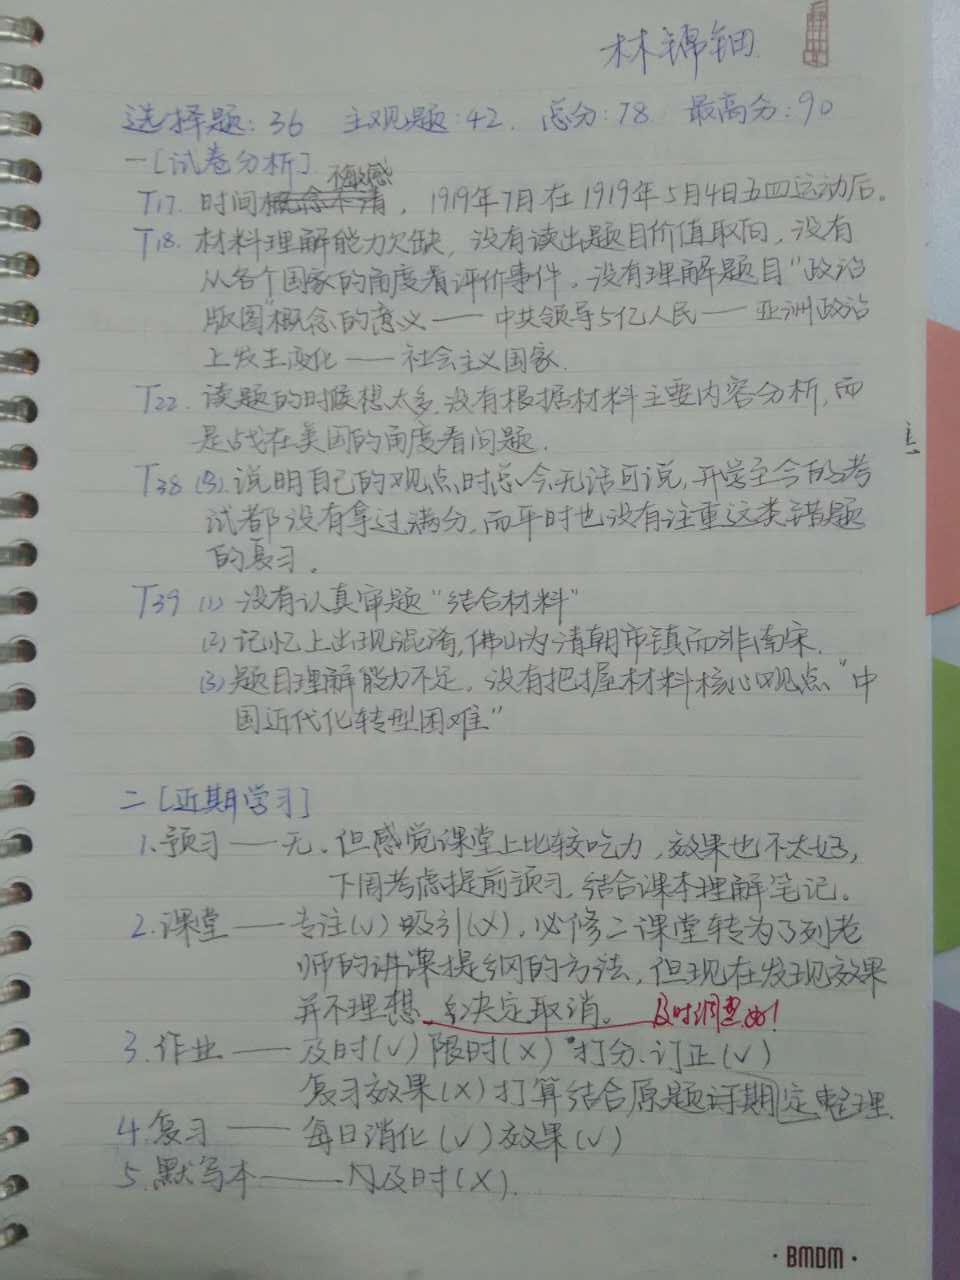 林锦钿
选择题：36 主观题：42. 总分：78 最高分：90
一[试卷分析]
不敏感
T17. 时间概念不清，1919年7月在1919年5月4日五四运动后。
T18. 材料理解能力欠缺，没有读出题目价值取向，没有
从各个国家的角度看评价事件。没有理解题目"政治
版图"概念的意义——中共领导5亿人民——亚洲政治
上发生变化——社会主义国家.
T22. 读题的时候想太多，没有根据材料主要内容分析，而
是站在美国的角度看问题.
T38 (3). 说明自己的观点时总会无话可说，开学至今的考
试都没有拿过满分，而平时也没有注重这类错题
的复习.
T39 (1) 没有认真审题"结合材料"
(2) 记忆上出现混淆，佛山为清朝市镇而非南宋.
(3) 题目理解能力不足，没有把握材料核心观点"中
国近代化转型困难"
二[近期学习]
1. 预习——无。但感觉课堂上比较吃力，效果也不太好，
下周考虑提前预习，结合课本理解笔记。
2. 课堂——专注(√) 吸引(×). 必修二课堂转为了列老
师的讲课提纲的方法，但现在发现效果
并不理想，决定取消。 及时调整好！
3. 作业——及时(√) 限时(×) 打分、订正(√)
复习效果(×) 打算结合原题订期定整理.
4. 复习——每日消化(√) 效果(√)
5. 默写本——及时(×).
· BMDM ·